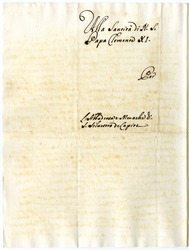 Alla Santità di N. S.
Papa Clemente XI.
Per
L'Abbadessa e Monache di
S. Silvestro in Capite